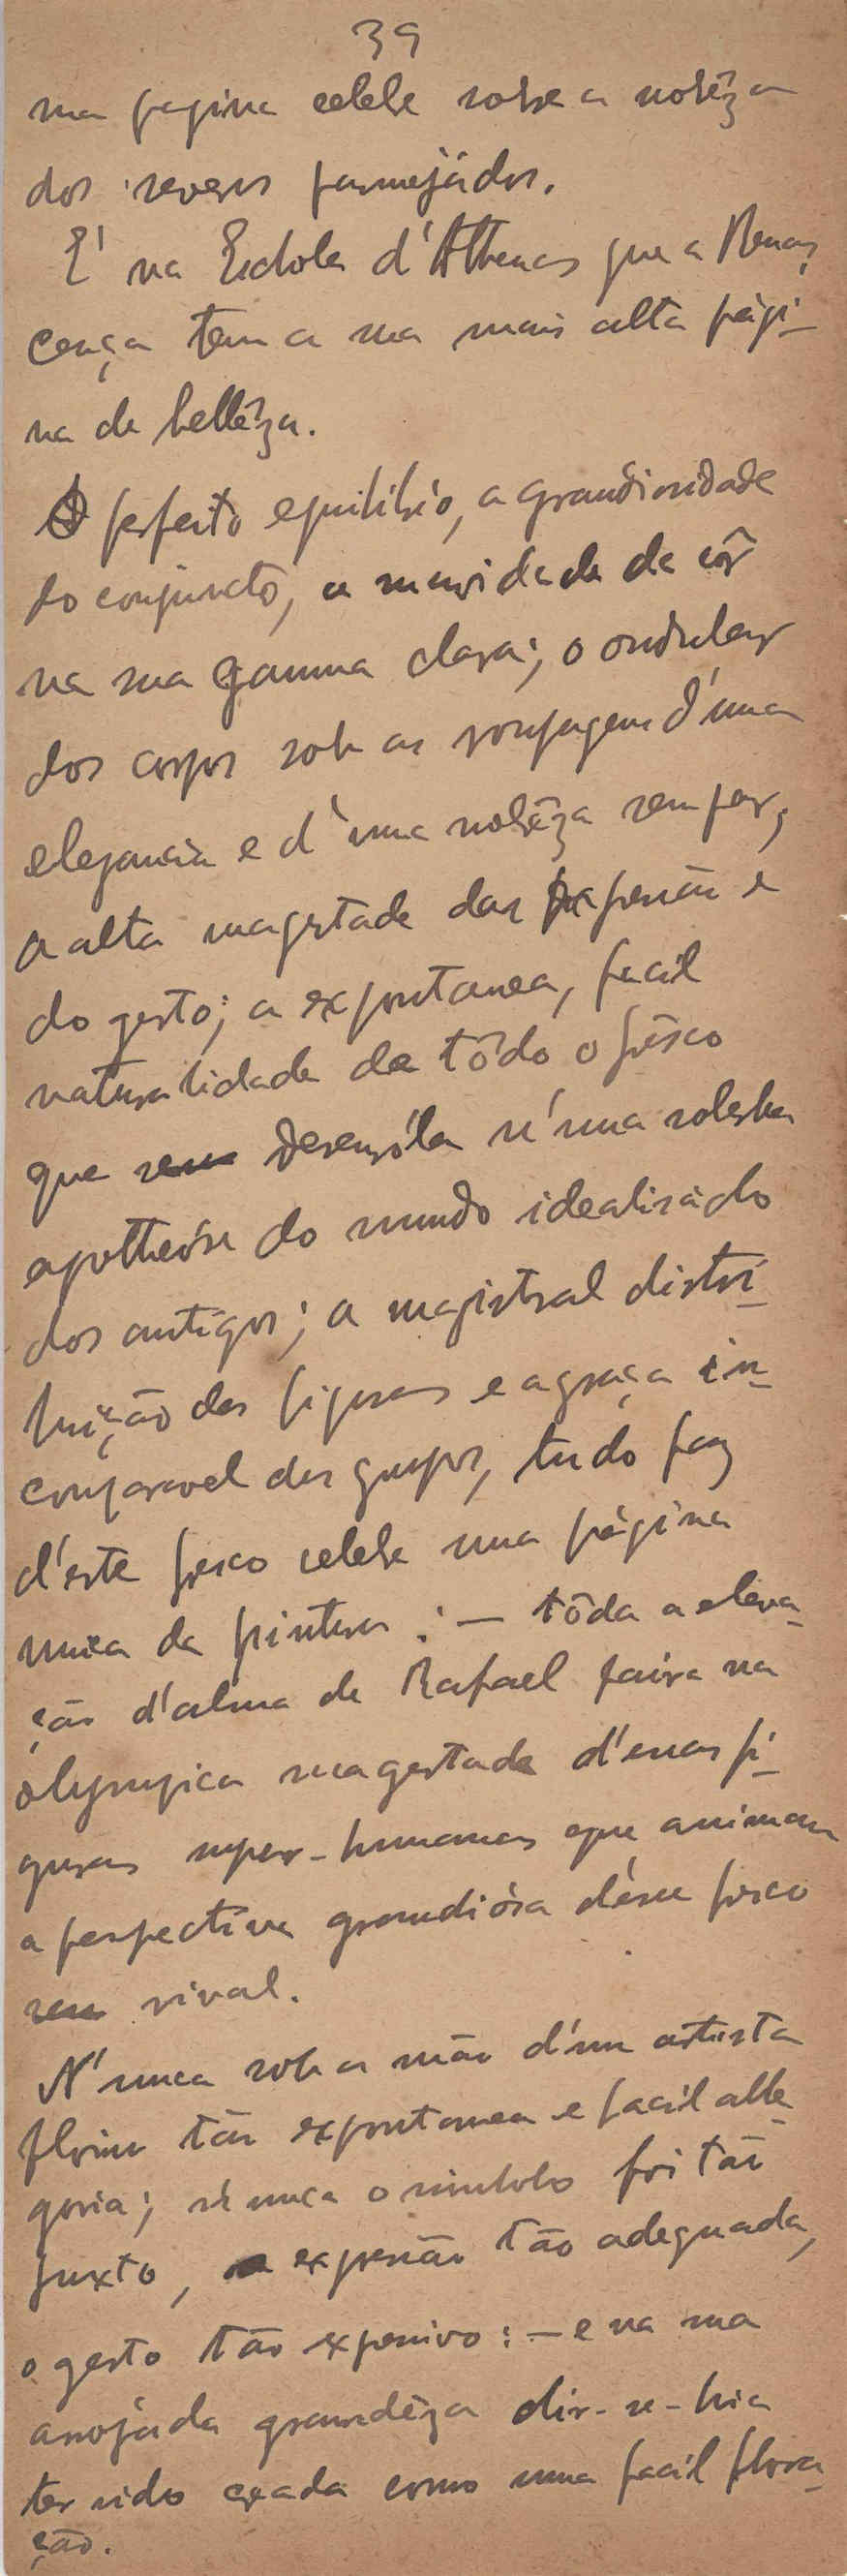 39
sua pagina celebre sobre a nobrêza
dos severos panejádos.
E' na Eschola d'Athenas que a Renas
cença tem a sua mais alta pági-
na de bellêza.
O perfeito equilibrio, a grandiosidade
do conjuncto, a suavidade da côr
na sua gamma clara; o ondular
dos corpos sob as roupagens d'uma
elegancia e d'uma nobrêza sem par,
a alta magestade das expressões e
do gesto; a expontanea, facil
naturalidade de tôdo o frêsco
que desenróla n'uma soberba
apotheóse do mundo idealisádo
dos antigos; a magistral distri-
buição das figuras e a graça in-
comparavel dos grupos, tudo faz
d'este fresco celebre uma página
unica da pintura: — tôda a eleva-
ção d'alma de Rafael paira na
olympica magestade d'essas fi-
guras super-humanas que animam
a perspectiva grandiósa désse fresco
sem rival.
N'unca sob a mão d'um artista
floriu tão expontanea e facil alle-
goria; n'unca o simbolo foi tão
juxto, a expressão tão adequada,
o gesto tão expressivo: — e na sua
arrojada grandêza dir-se-hia
ter sido creada como uma facil flora-
ção.